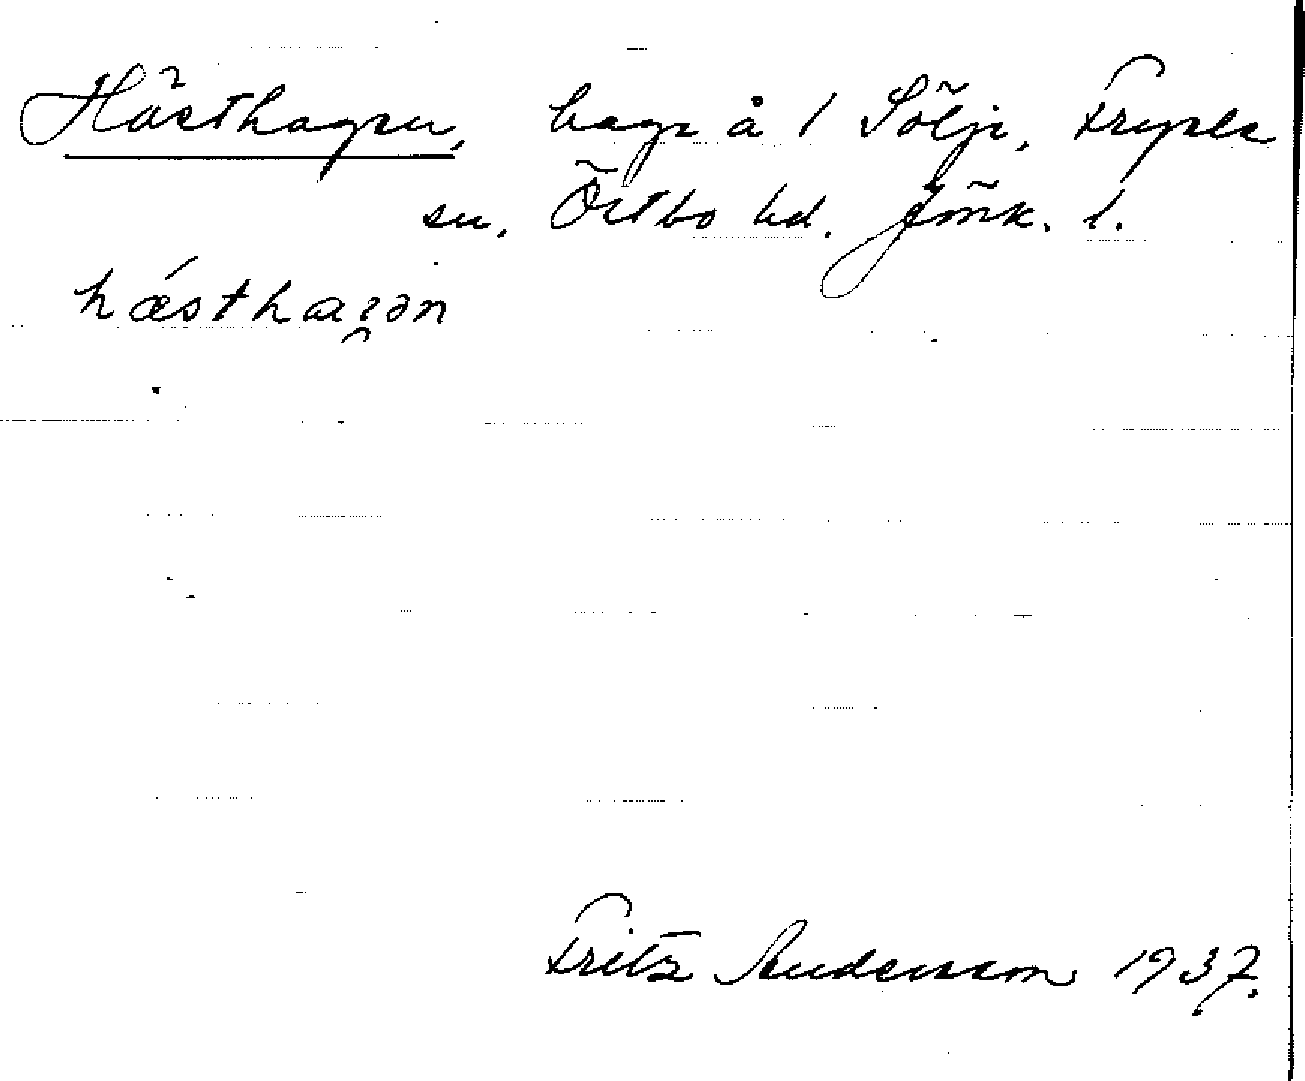 Hästhagen, hage å 1 Sölje, Fryele
sn, Östbo hd. Jönk. l.
hæ´sthagən
Fritz Andersson 1937.